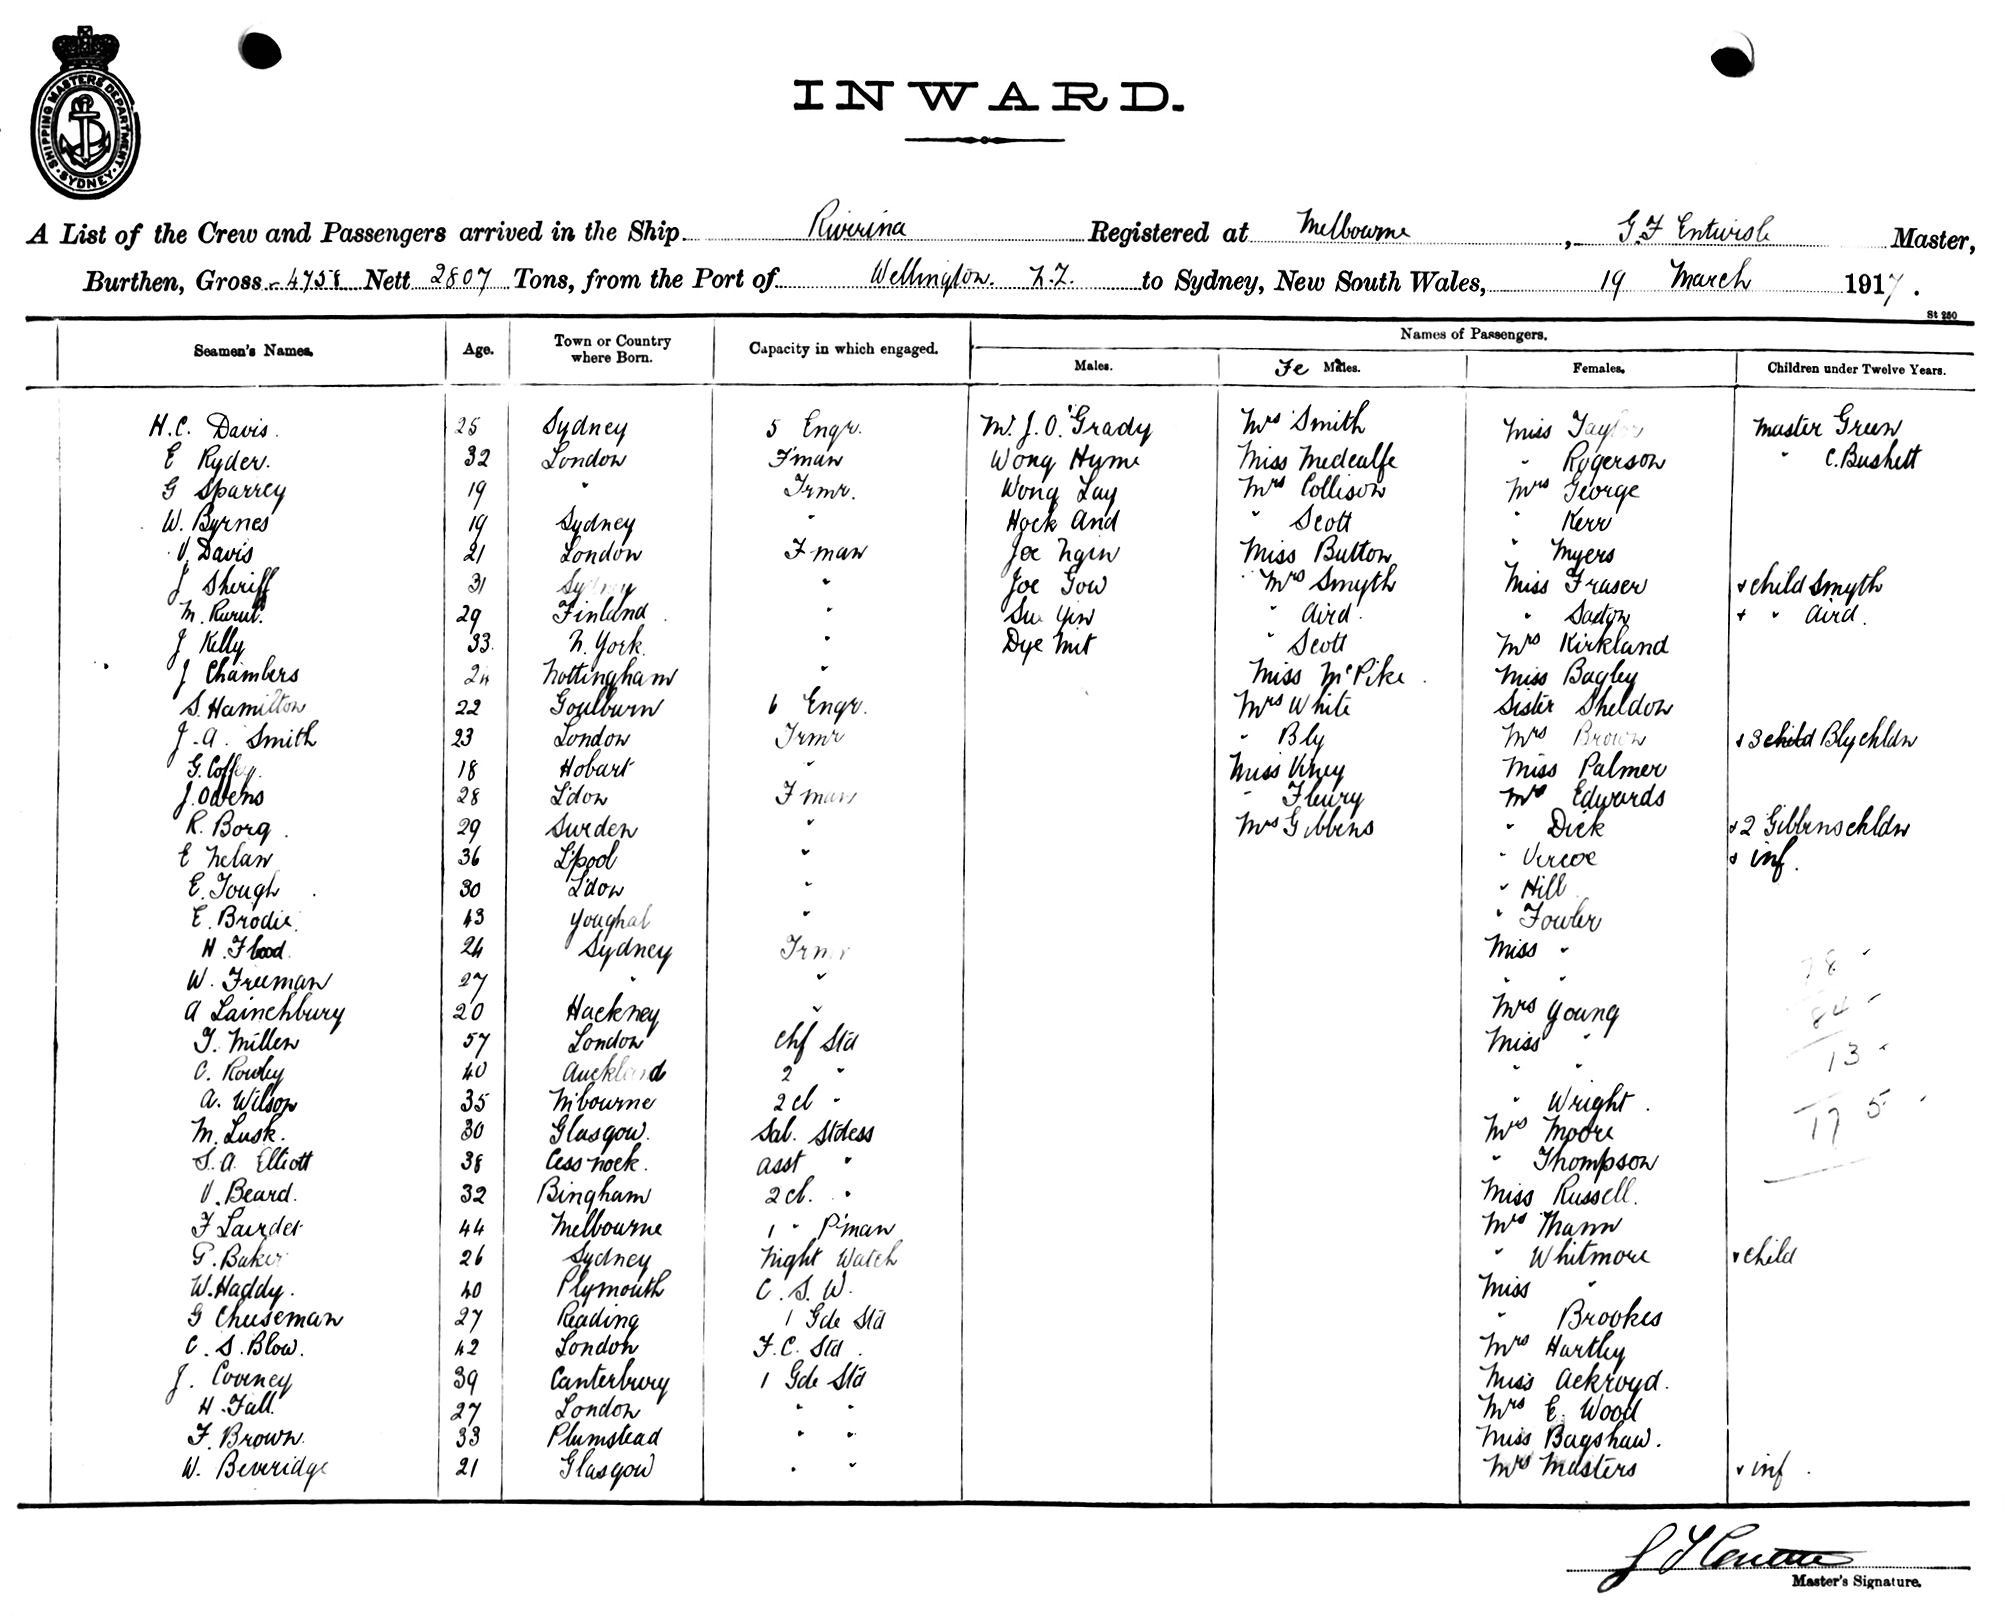 SHIPPING MASTERS DEPARTMENT
SYDNEY
INWARD.
A List of the Crew and Passengers arrived in the Ship Riverina Registered at Melbourne, G.F Entwisle Master,
Burthen, Gross 4758 Nett 2807 Tons, from the Port of Wellington. N.Z. to Sydney, New South Wales, 19 March 1917.
St 250
Seamen's Names. Age. Town or Country where Born. Capacity in which engaged. Names of Passengers.
Males. Fe Males. Females. Children under Twelve Years.
H.C. Davis. 25 Sydney 5 Engr. M. J. O'Grady Mrs Smith Miss Taylor Master Green
E Ryder. 32 London F'man Wong Hyme Miss Medcalfe " Rogerson " C. Bushett
G Sparrey 19 " Trmr. Wong Lay Mrs Collison Mrs George
W. Byrnes 19 Sydney " Hock And " Scott " Kerr
V. Davis 21 London F'man Joe Ngin Miss Button " Myers
J Sheriff 31 Sydney " Joe Gow Mrs Smyth Miss Fraser & child Smyth
M. 29 Finland " Su Yin " Aird. " Saxton & " Aird.
J Kelly 33. N. York. " Dye Mit " Scott Mrs Kirkland
J Chambers 24 Nottingham " Miss McPike. Miss Bagley
S. Hamilton 22 Goulburn 6 Engr. Mrs White Sister Sheldon
J. A. Smith 23 London Trmr " Bly Mrs Brown & 3 child Bly chldn
G. Coffey. 18 Hobart " Miss Viney Miss Palmer
J. Owens 28 L'don F'man " Fleury Mrs Edwards
R. Borg. 29 Sweden " Mrs Gibbens " Dick & 2 Gibbens chldn
E Nelan 36 L'pool " " Vercoe & inf.
E. Tough 30 L'don " " Hill
E. Brodie. 43 Youghal " " Fowler
H. Flood. 24 Sydney Trmr Miss "
W. Freeman 27 " " " "
A Lainchbury 20 Hackney " Mrs Young
T. Millen 57 London Chf Std Miss "
C. Rowley 40 Auckland 2 " " "
A. Wilson 35 M'bourne 2 cl " " Wright.
M. Lusk. 30 Glasgow. Sal. Stdess Mrs Moore
S. A. Elliott 38 Cessnock. asst " " Thompson
V. Beard. 32 Bingham 2 cl. " Miss Russell.
F Lairdet 44 Melbourne 1 " P'man Mrs Mann
G. Baker 26 Sydney Night Watch " Whitmore & child
W. Haddy. 40 Plymouth C. S. W. Miss "
G Cheeseman 27 Reading 1 Gde Std " Brookes
C. S. Blow. 42 London F. C. Std. Mrs Hartley
J. Cooney 39 Canterbury 1 Gde Std Miss Ackroyd.
H. Fall. 27 London " " Mrs E. Wood
F. Brown. 33 Plumstead " " Miss Bagshaw.
W. Beveridge 21 Glasgow " " Mrs Masters & inf.
78
84
13
175
Master's Signature.